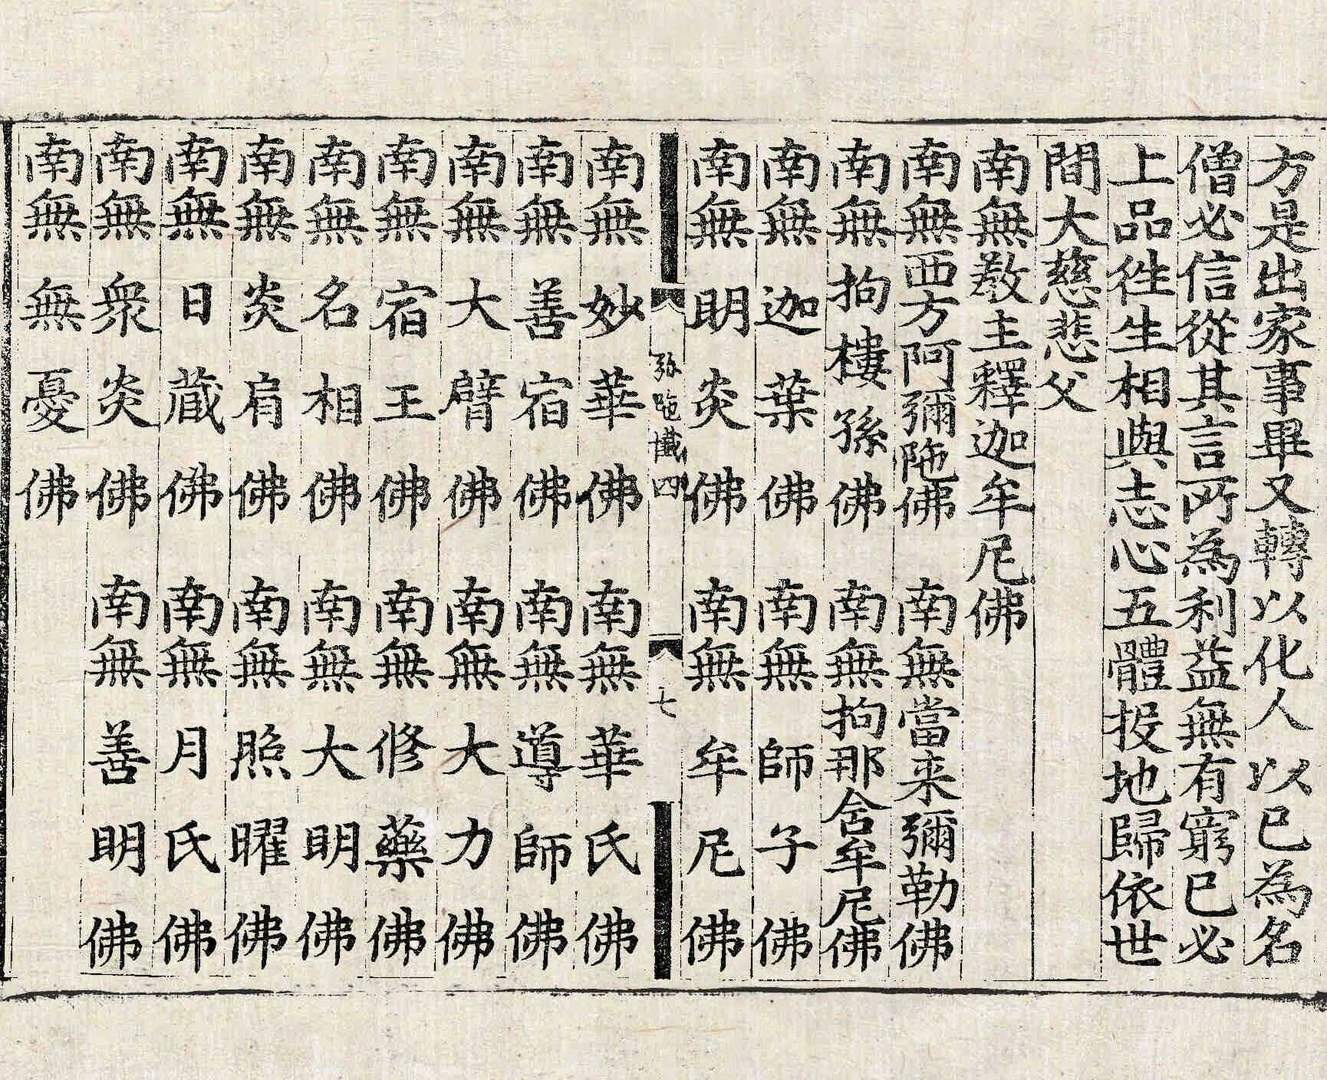 方是出家事畢又轉以化人以已為名
僧必信從其言所為利益無有窮已必
上品徃生相與志心五體投地歸依世
間大慈悲父
南無敎主釋迦牟尼佛
南無西方阿彌陁佛 南無當来彌勒佛
南無拘樓孫佛 南無拘那舍牟尼佛
南無迦葉佛 南無師子佛
南無明炎佛 南無牟尼佛
弥陁懺四 七
南無妙華佛 南無華氏佛
南無善宿佛 南無導師佛
南無大臂佛 南無大力佛
南無宿王佛 南無修藥佛
南無名相佛 南無大明佛
南無炎肩佛 南無照曜佛
南無日藏佛 南無月氏佛
南無衆炎佛 南無善明佛
南無無憂佛